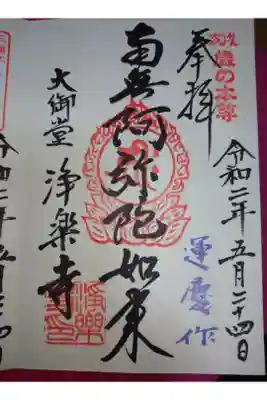 の本尊
奉拝
令和二年五月二十四日
運慶作
南無阿弥陀如来
大御堂 浄楽寺
令和二年五月二十四